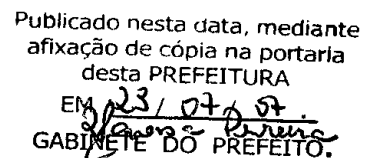 Publicado nesta data, mediante
afixação de cópia na portaria
desta PREFEITURA
EM 23/07/07.
Pereira
GABINETE DO PREFEITO.